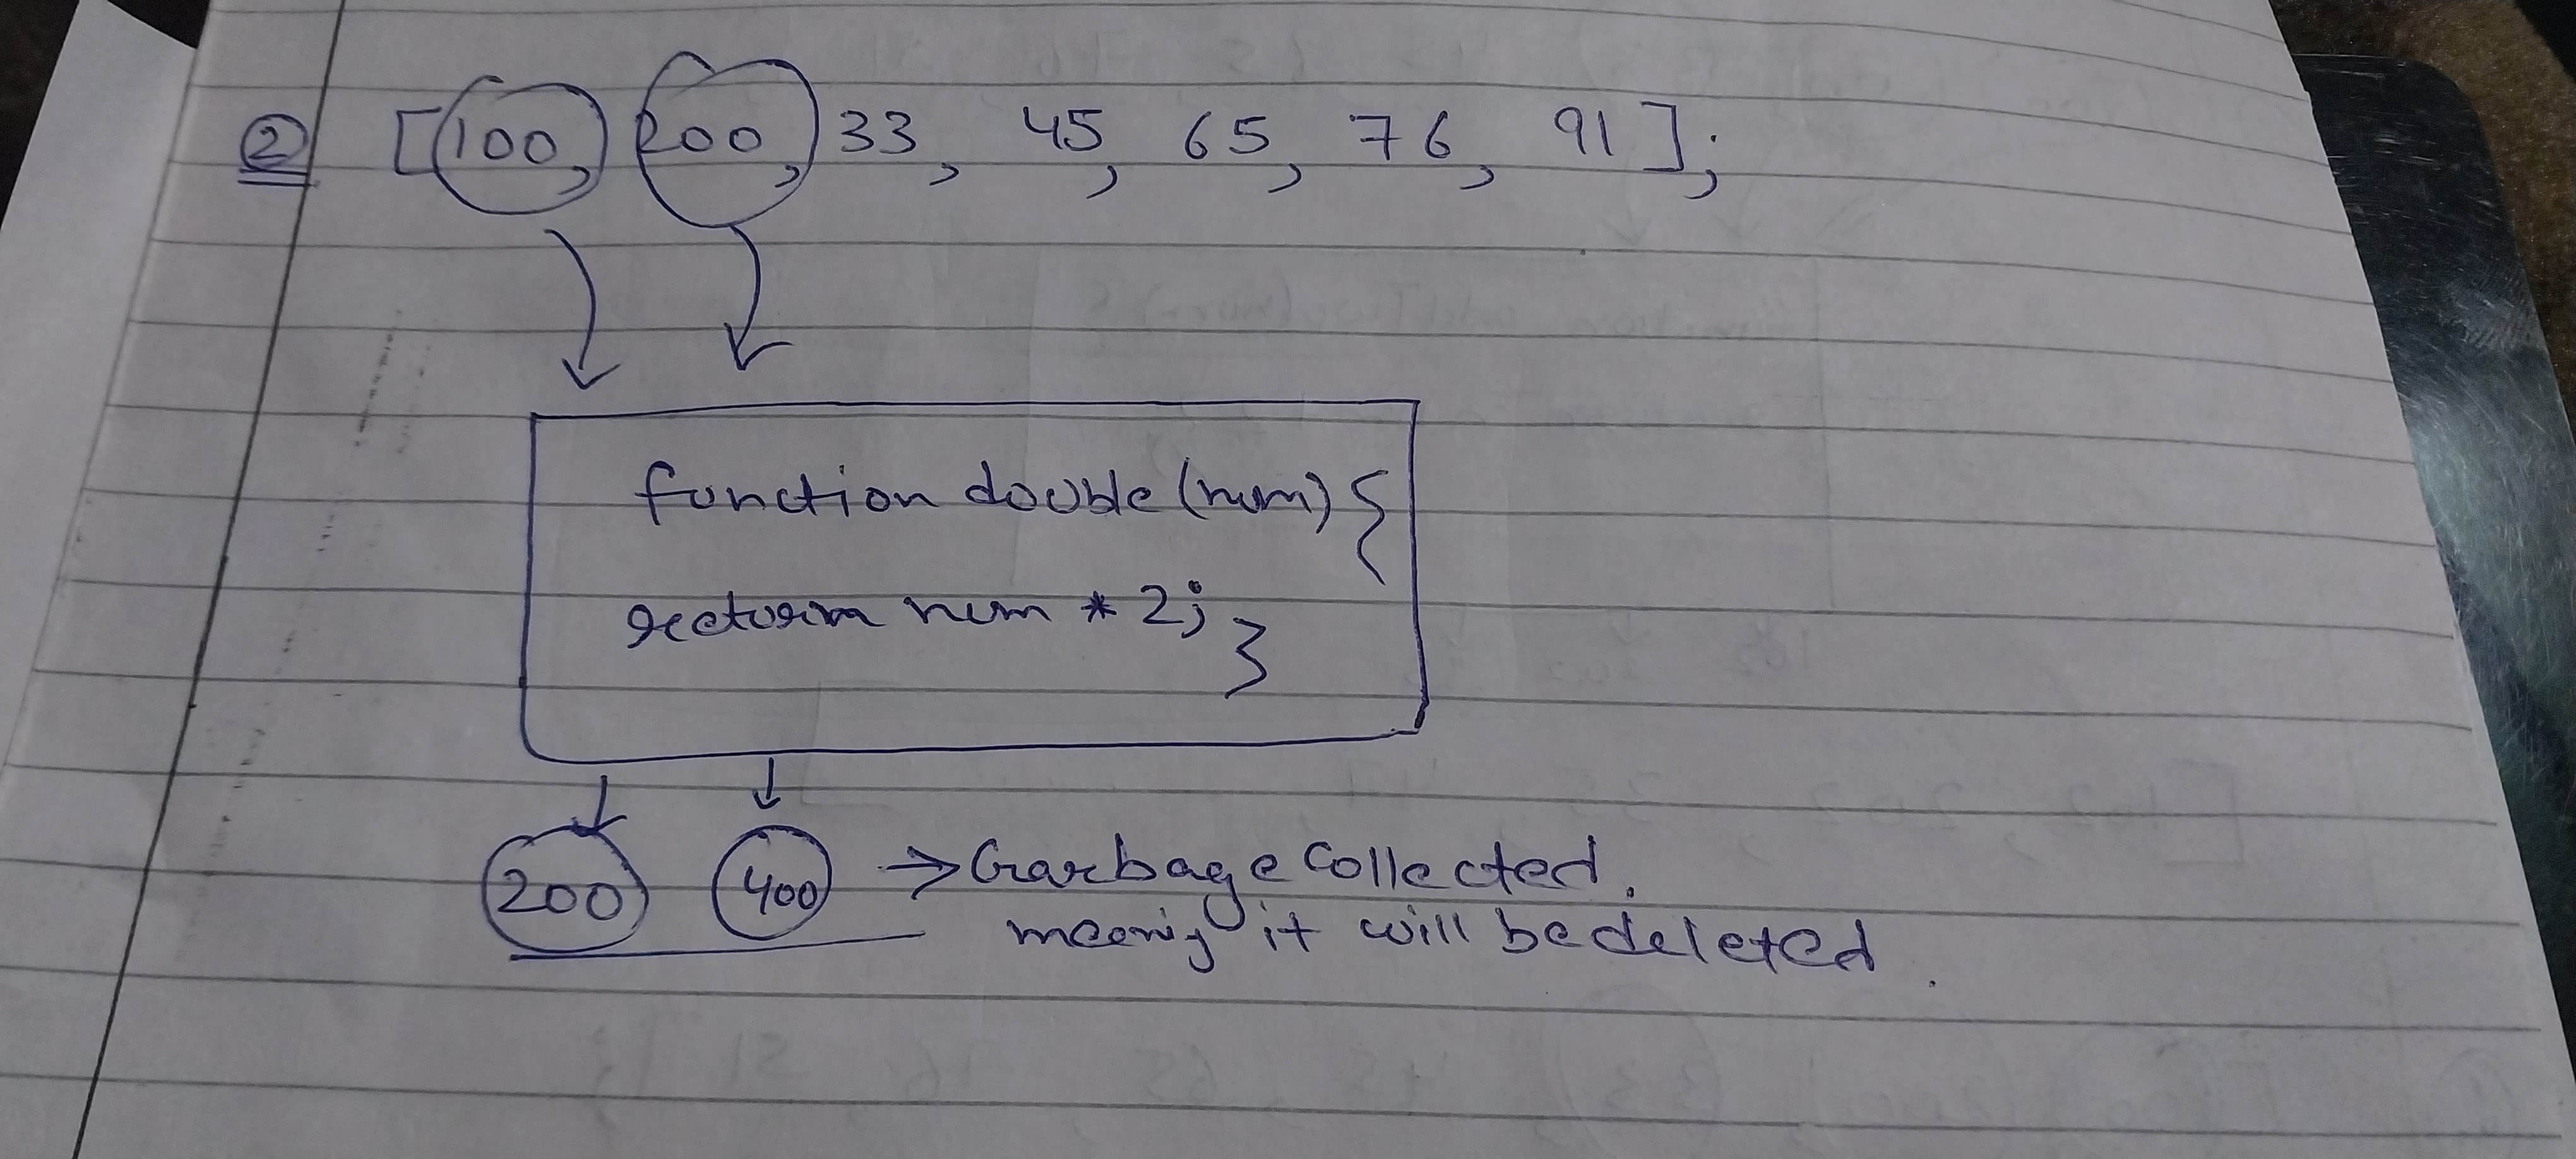 ② [100, 200, 33, 45, 65, 76, 91];
function double (num) {
return num * 2; }
200 400 → Garbage Collected.
meaning it will be deleted.